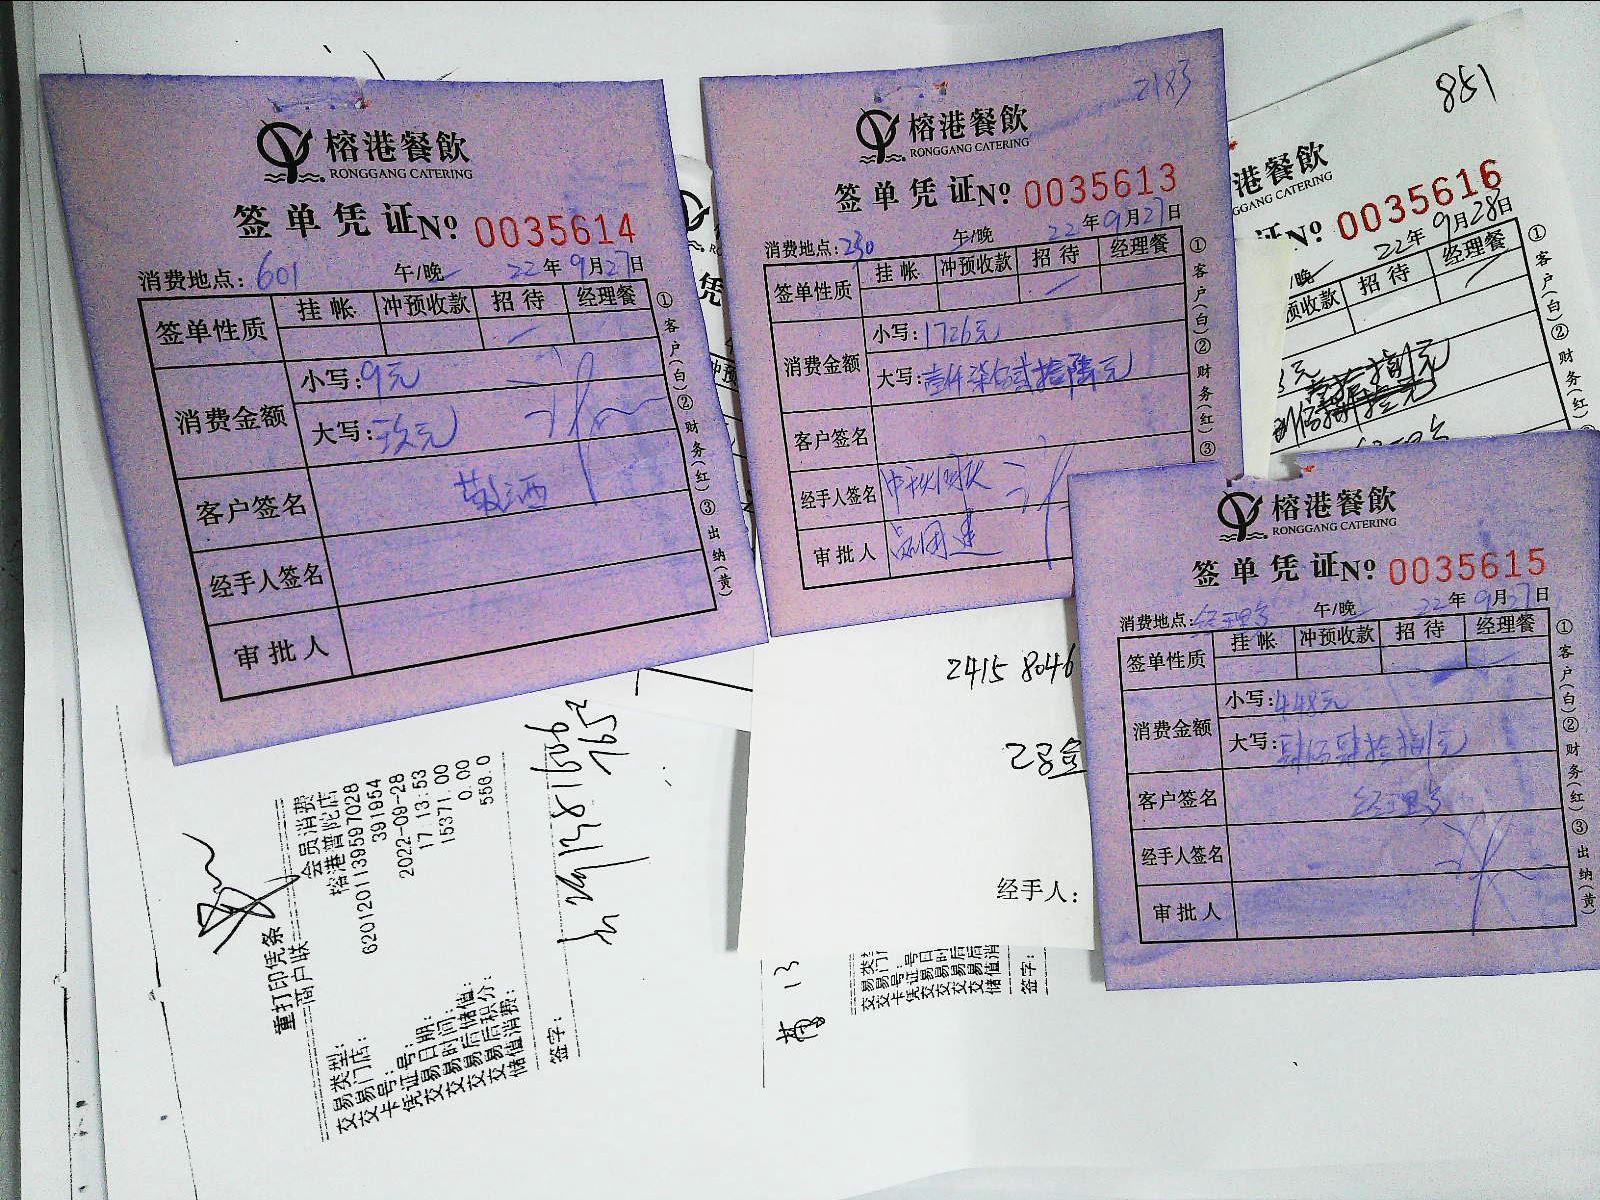 榕港餐飲
RONGGANG CATERING
签单凭证№ 0035614
消费地点:601 午/晚 22年9月27日
签单性质 挂帐 冲预收款 招待 经理餐
消费金额
小写:9元
大写:玖元
客户签名 敬酒
经手人签名
审批人
①客户(白)②财务(红)③出纳(黄)
2183
榕港餐飲
RONGGANG CATERING
签单凭证№ 0035613
消费地点:230 午/晚 22年9月27日
签单性质 挂帐 冲预收款 招待 经理餐
消费金额
小写:1726元
大写:壹仟柒佰贰拾陆元
客户签名
经手人签名
审批人
①客户(白)②财务(红)③
851
港餐飲
GGANG CATERING
证№ 0035616
/晚 22年9月28日
预收款 招待 经理餐
元
经理
①客户(白)②财务(红)
榕港餐飲
RONGGANG CATERING
签单凭证№ 0035615
消费地点:经理 午/晚 22年9月27日
签单性质 挂帐 冲预收款 招待 经理餐
消费金额
小写:448元
大写:肆佰肆拾捌元
客户签名 经理
经手人签名
审批人
①客户(白)②财务(红)③出纳(黄)
凭
冲预
2415 8046
2号
经手人:
重打印凭条
商户联
交易类型: 会员消费
交易门店: 榕港普陀店
卡号: 6201201139597028
凭证号: 391954
交易日期: 2022-09-28
交易时间: 17 13:53
交易后储值: 15371.00
交易后积分: 0.00
储值消费: 556.0
签字:
7652
13
交易类
交易门
卡号:
凭证号
交易日
交易时
交易后
交易后
储值消
签字: